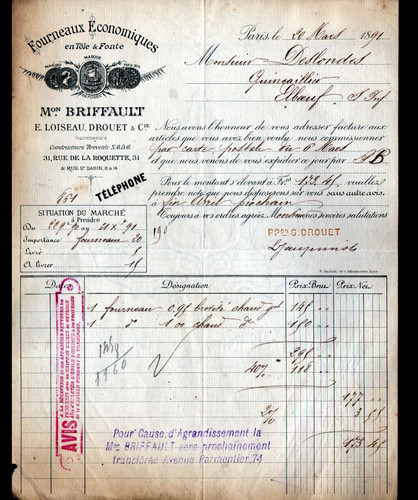 Fourneaux Economiques
en Tôle & Fonte
MARQUE
Mon BRIFFAULT
E. LOISEAU, DROUET & Cie
Successeurs
Constructeurs Brevetés S.G.D.G.
31, RUE DE LA ROQUETTE, 31
& RUE St SABIN, 8 & 14
TÉLÉPHONE
Paris, le 20 Mars 1891
Monsieur Deslondes
Quincaillier
Elbeuf
Nous avons l'honneur de vous adresser facture aux
articles que vous avez bien voulu nous commissionner
par carte postale du 6 Mars
et que nous venons de vous expédier ce jour par
Pour le montant s'élevant à Frs 173.45, veuillez
prendre note que nous disposerons sur vous sans autre avis,
à fin Avril prochain
Toujours à vos ordres agréez nos sincères salutations
Ppon G. DROUET
SITUATION DU MARCHÉ
à Prendre
Importance fourneaux 20
Livré 5
A livrer 15
190
Dates Désignation Prix Brut Prix Net
1 fourneau 0.95 chaud 145
1 do 1 00 chaud do 150
295
40% 118
177
2% 3 55
173 45
AVIS
Pour Cause d'Agrandissement la
Mon BRIFFAULT sera prochainement
transférée Avenue Parmentier, 74